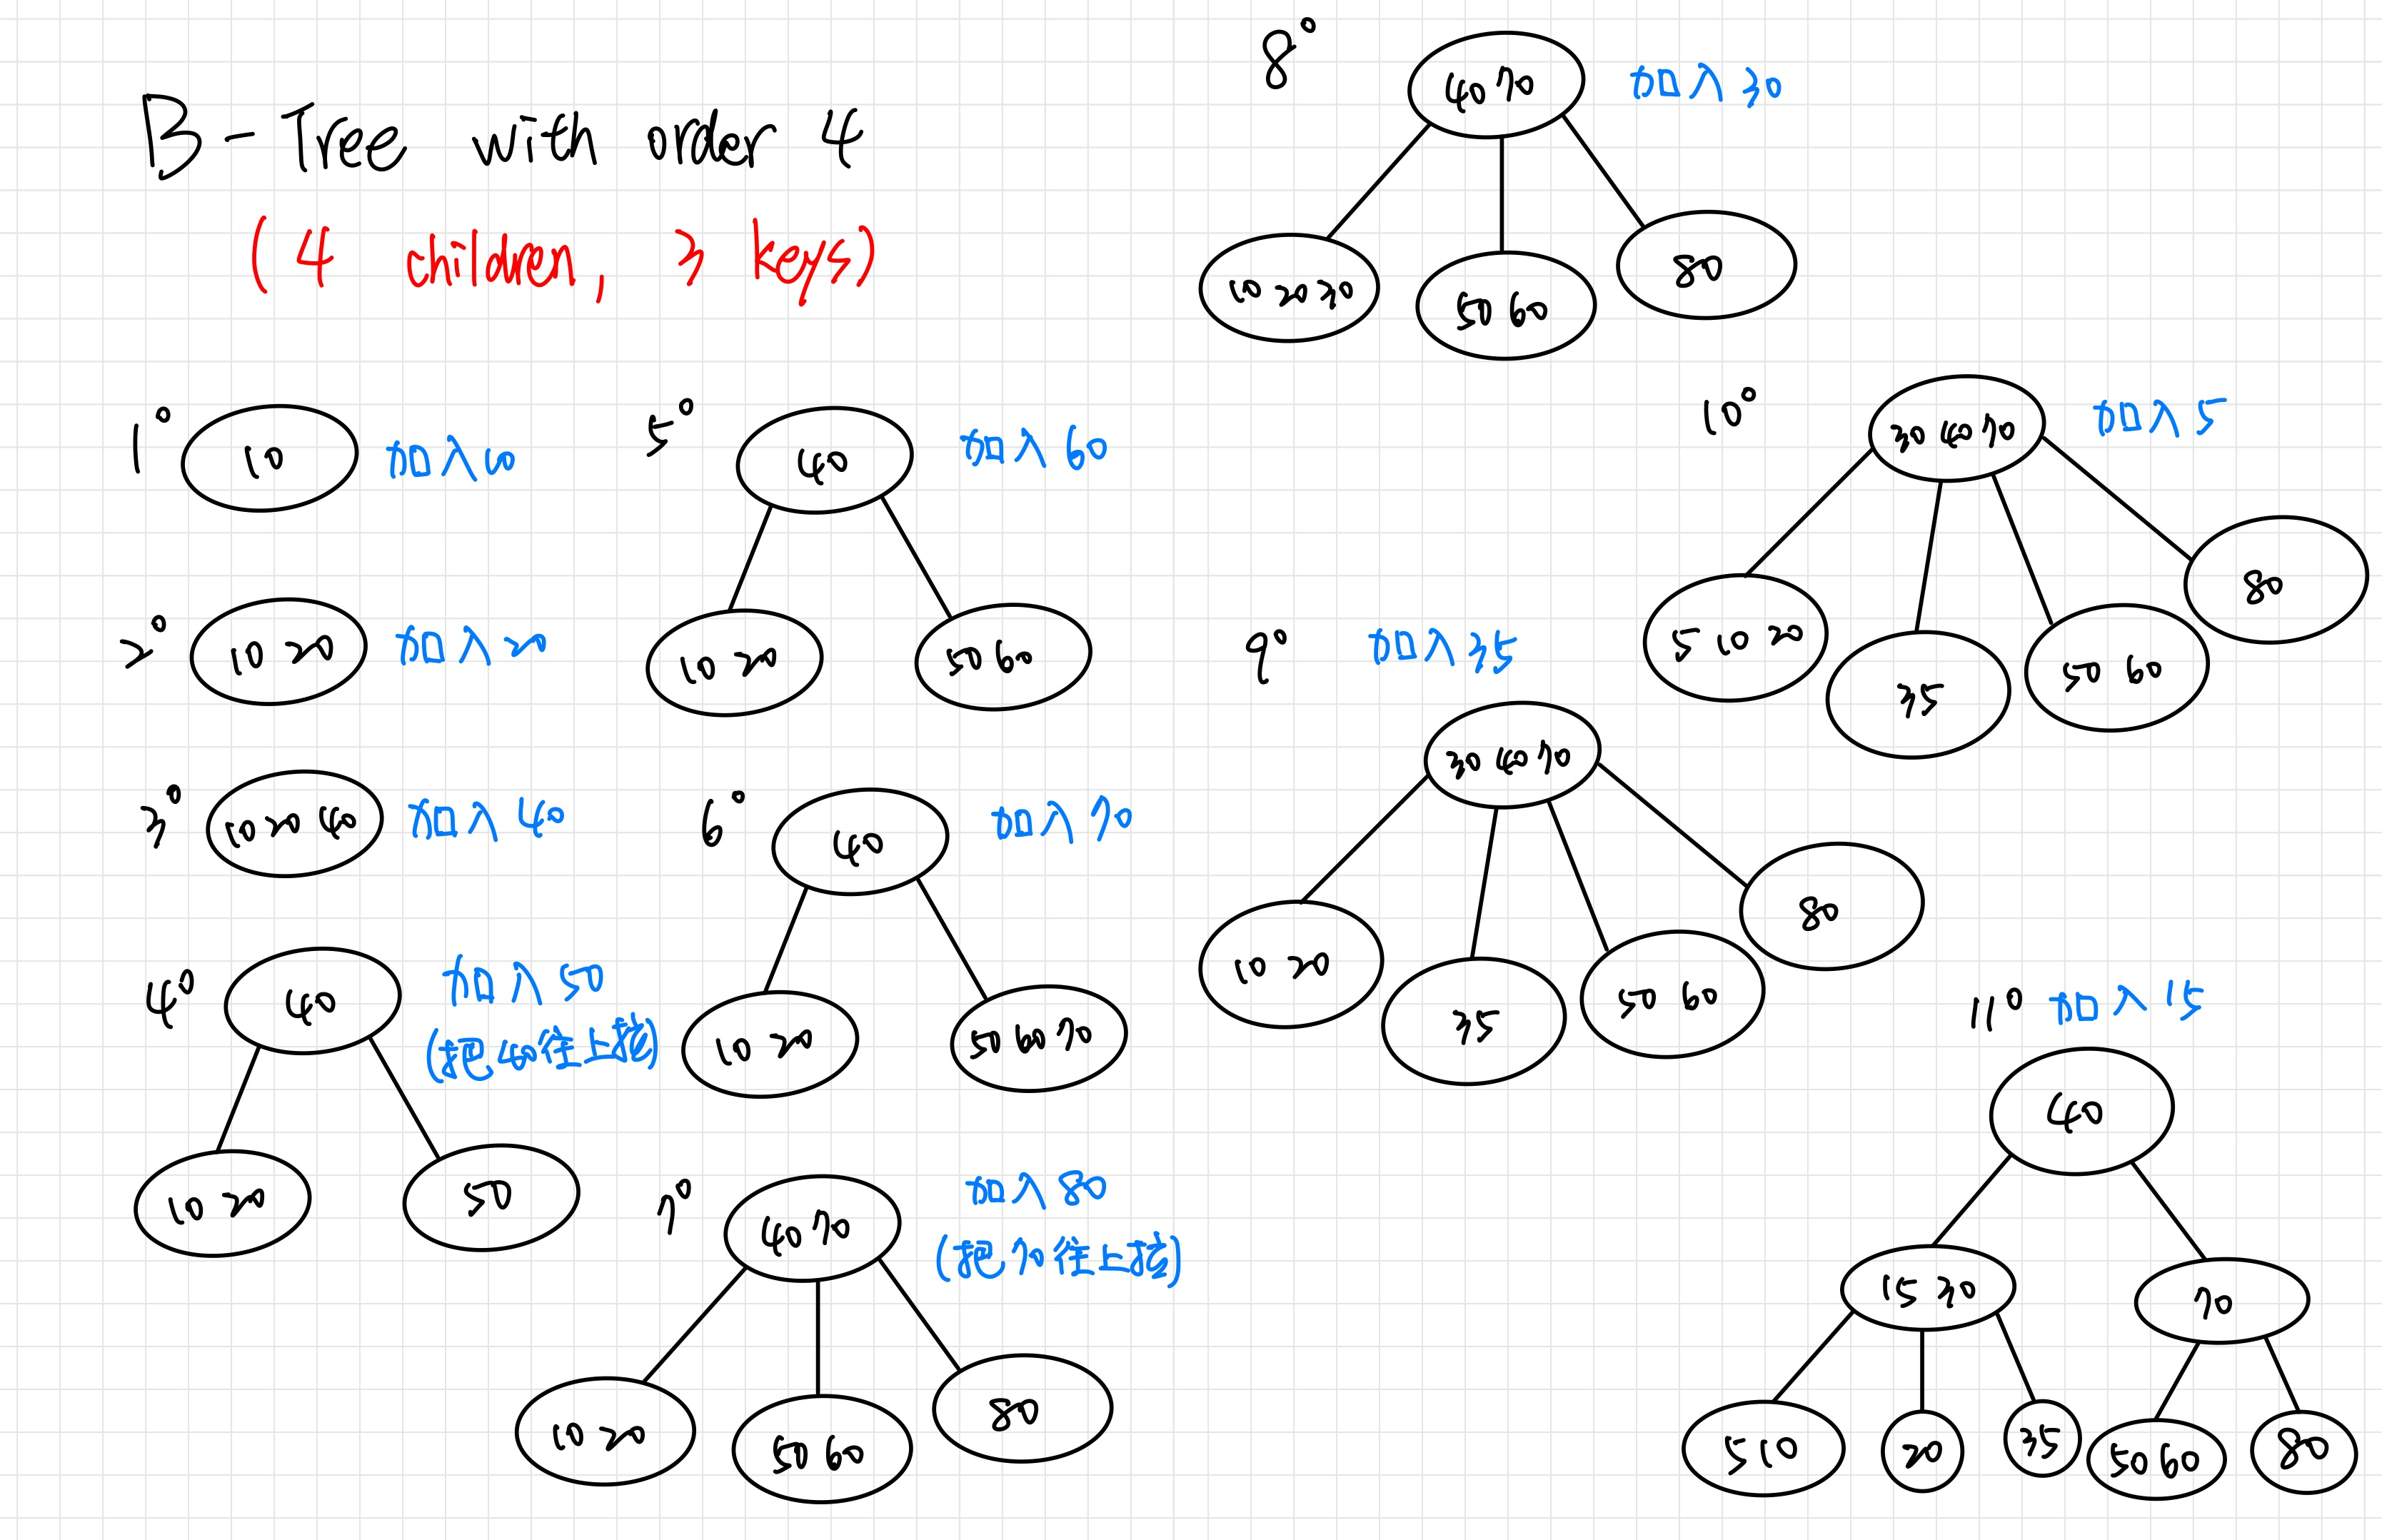 B-Tree with order 4
(4 children, 3 keys)
1°
10
加入10
2°
10 20
加入20
3°
10 20 40
加入40
4°
40
加入50
(把40往上搬)
10 20
50
5°
40
加入60
10 20
50 60
6°
40
加入70
10 20
50 60 70
7°
40 70
加入80
(把70往上搬)
10 20
50 60
80
8°
40 70
加入30
10 20 30
50 60
80
9°
加入35
30 40 70
10 20
35
50 60
80
10°
30 40 70
加入5
5 10 20
35
50 60
80
11°
加入15
40
15 30
70
5 10
20
35
50 60
80